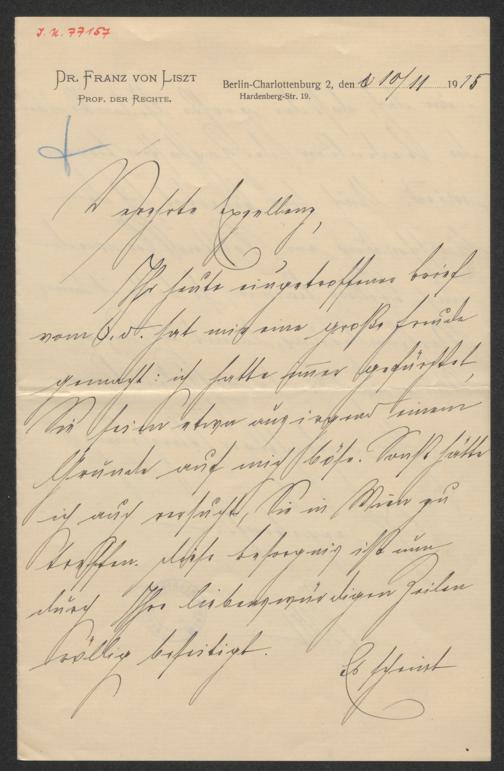 J. N. 77157
DR. FRANZ VON LISZT
PROF. DER RECHTE.
Berlin-Charlottenburg 2, den 10/11 1915
Hardenberg-Str. 19.
Verehrte Exzellenz,
Ihr heute eingetroffener Brief
vom 6. d. hat mir eine große Freude
gemacht: ich hatte immer gefürchtet,
Sie seien etwa aus irgend einem
Grunde auf mich böse. Sonst hätte
ich auch versucht, Sie in Wien zu
treffen. Diese Besorgnis ist nun
durch Ihre liebenswürdigen Zeilen
völlig beseitigt.
Es scheint